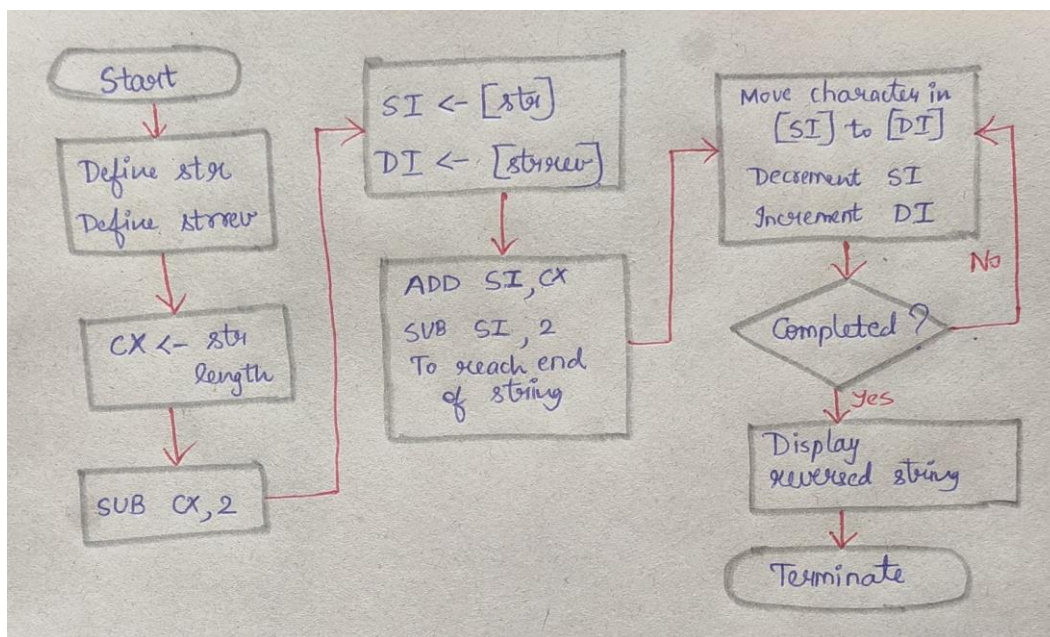 Start
Define str
Define strrev
CX <- str
length
SUB CX, 2
SI <- [str]
DI <- [strrev]
ADD SI, CX
SUB SI, 2
To reach end
of string
Move character in
[SI] to [DI]
Decrement SI
Increment DI
No
Completed ?
Yes
Display
reversed string
Terminate